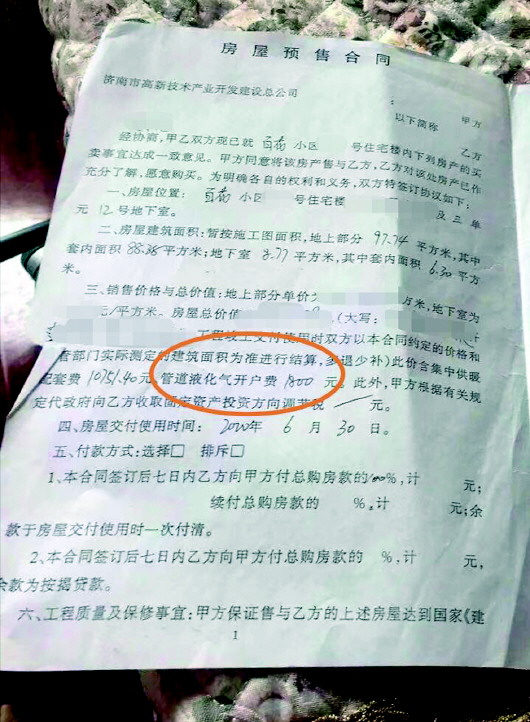 房屋预售合同
济南市高新技术产业开发建设总公司
: 甲方
以下简称 乙方
经协商,甲乙双方现已就 百花 小区 号住宅楼内下列房产的买
卖事宜达成一致意见。甲方同意将该房产售与乙方,乙方对该处房产已作
充分了解,愿意购买。为明确各自的权利和义务,双方特签订协议如下:
一、房屋位置: 百花 小区 号住宅楼 及三单
元 12 号地下室。
二、房屋建筑面积:暂按施工图面积,地上部分 97.74 平方米,其中
套内面积 88.36 平方米;地下室 8.77 平方米,其中套内面积 6.30 平方
米。
三、销售价格与总价值:地上部分单价 方米,地下室为
元/平方米。房屋总价值 (大写:
工程竣工交付使用时双方以本合同约定的价格和
管部门实际测定的建筑面积为准进行结算,多退少补)此价含集中供暖
配套费 10751.40 元,管道液化气开户费 1800 元。此外,甲方根有关规
定代政府向乙方收取固定资产投资方向调节税 / 元。
四、房屋交付使用时间: 2000年 6 月 30 日。
五、付款方式:选择□ 排斥□
1、本合同签订后七日内乙方向甲方付总购房款的100%,计 元;
续付总购房款的 %,计 元;余
款于房屋交付使用时一次付清。
2、本合同签订后七日内乙方向甲方付总购房款的 %,计 元,
余款为按揭贷款。
六、工程质量及保修事宜:甲方保证售与乙方的上述房屋达到国家《建
1